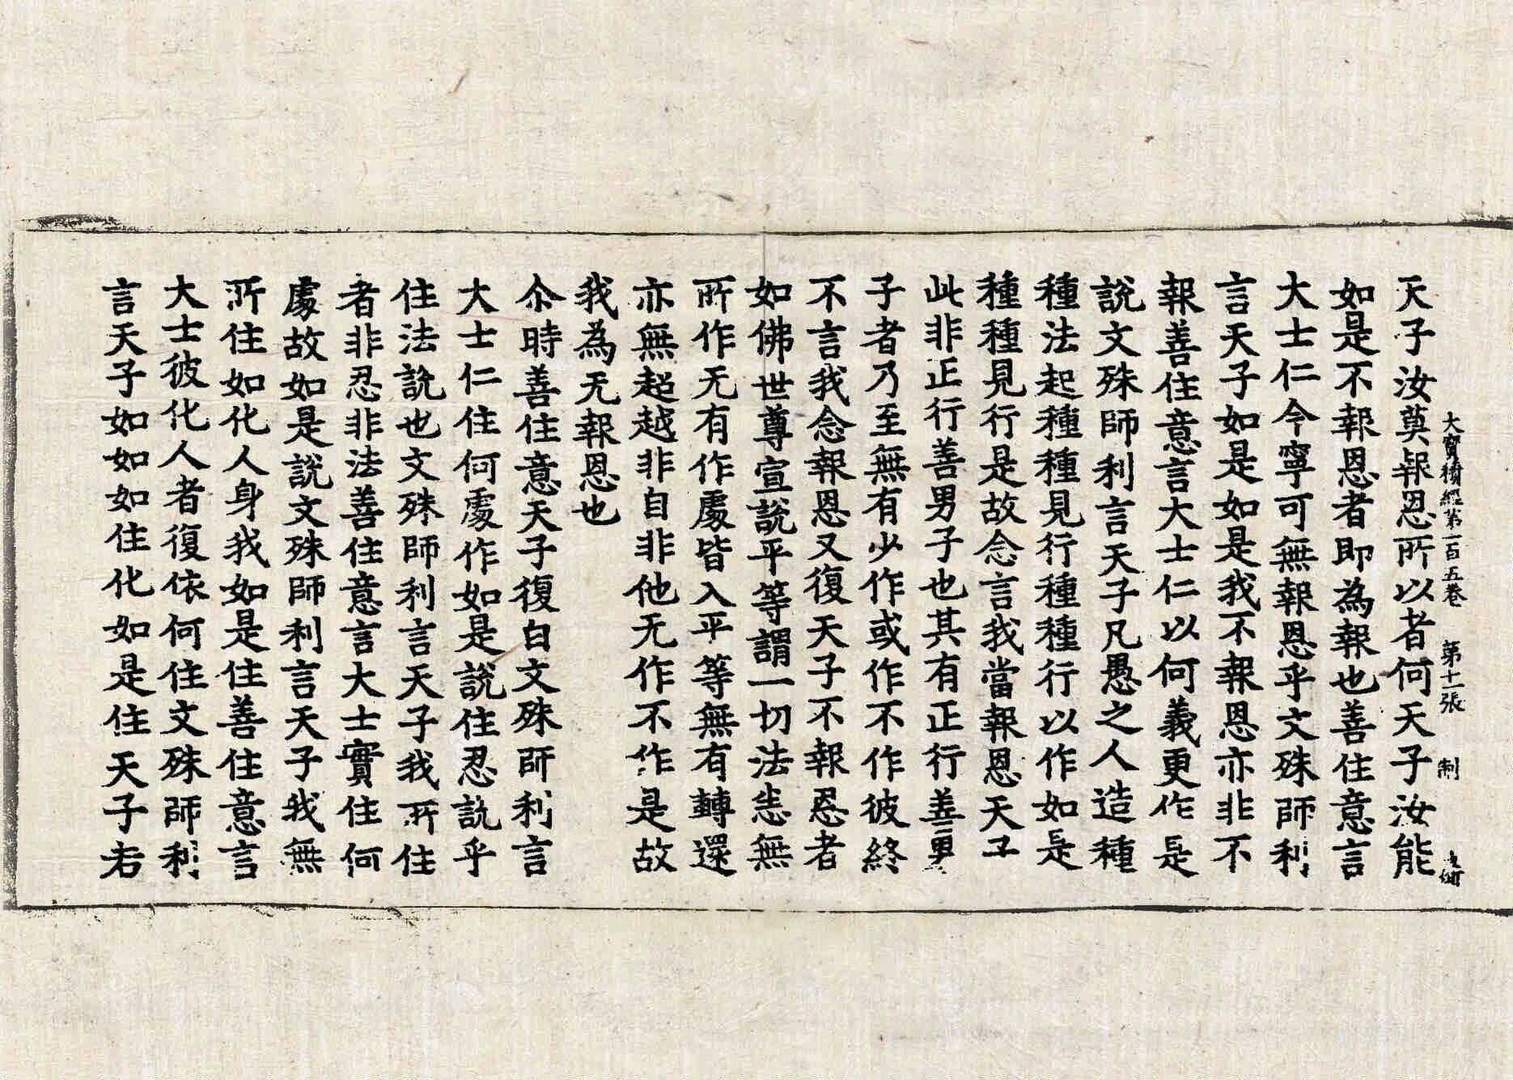 大寶積經第一百五卷　第十一張　制
天子汝莫報恩所以者何天子汝能
如是不報恩者即為報也善住意言
大士仁今寧可無報恩乎文殊師利
言天子如是如是我不報恩亦非不
報善住意言大士仁以何義更作是
說文殊師利言天子凡愚之人造種
種法起種種見行種種行以作如是
種種見行是故念言我當報恩天子
此非正行善男子也其有正行善男
子者乃至無有少作或作不作彼終
不言我念報恩又復天子不報恩者
如佛世尊宣說平等謂一切法悉無
所作无有作處皆入平等無有轉還
亦無超越非自非他无作不作是故
我為无報恩也
尒時善住意天子復白文殊師利言
大士仁住何處作如是說住忍說乎
住法說也文殊師利言天子我所住
者非忍非法善住意言大士實住何
處故如是說文殊師利言天子我無
所住如化人身我如是住善住意言
大士彼化人者復依何住文殊師利
言天子如如如住化如是住天子若